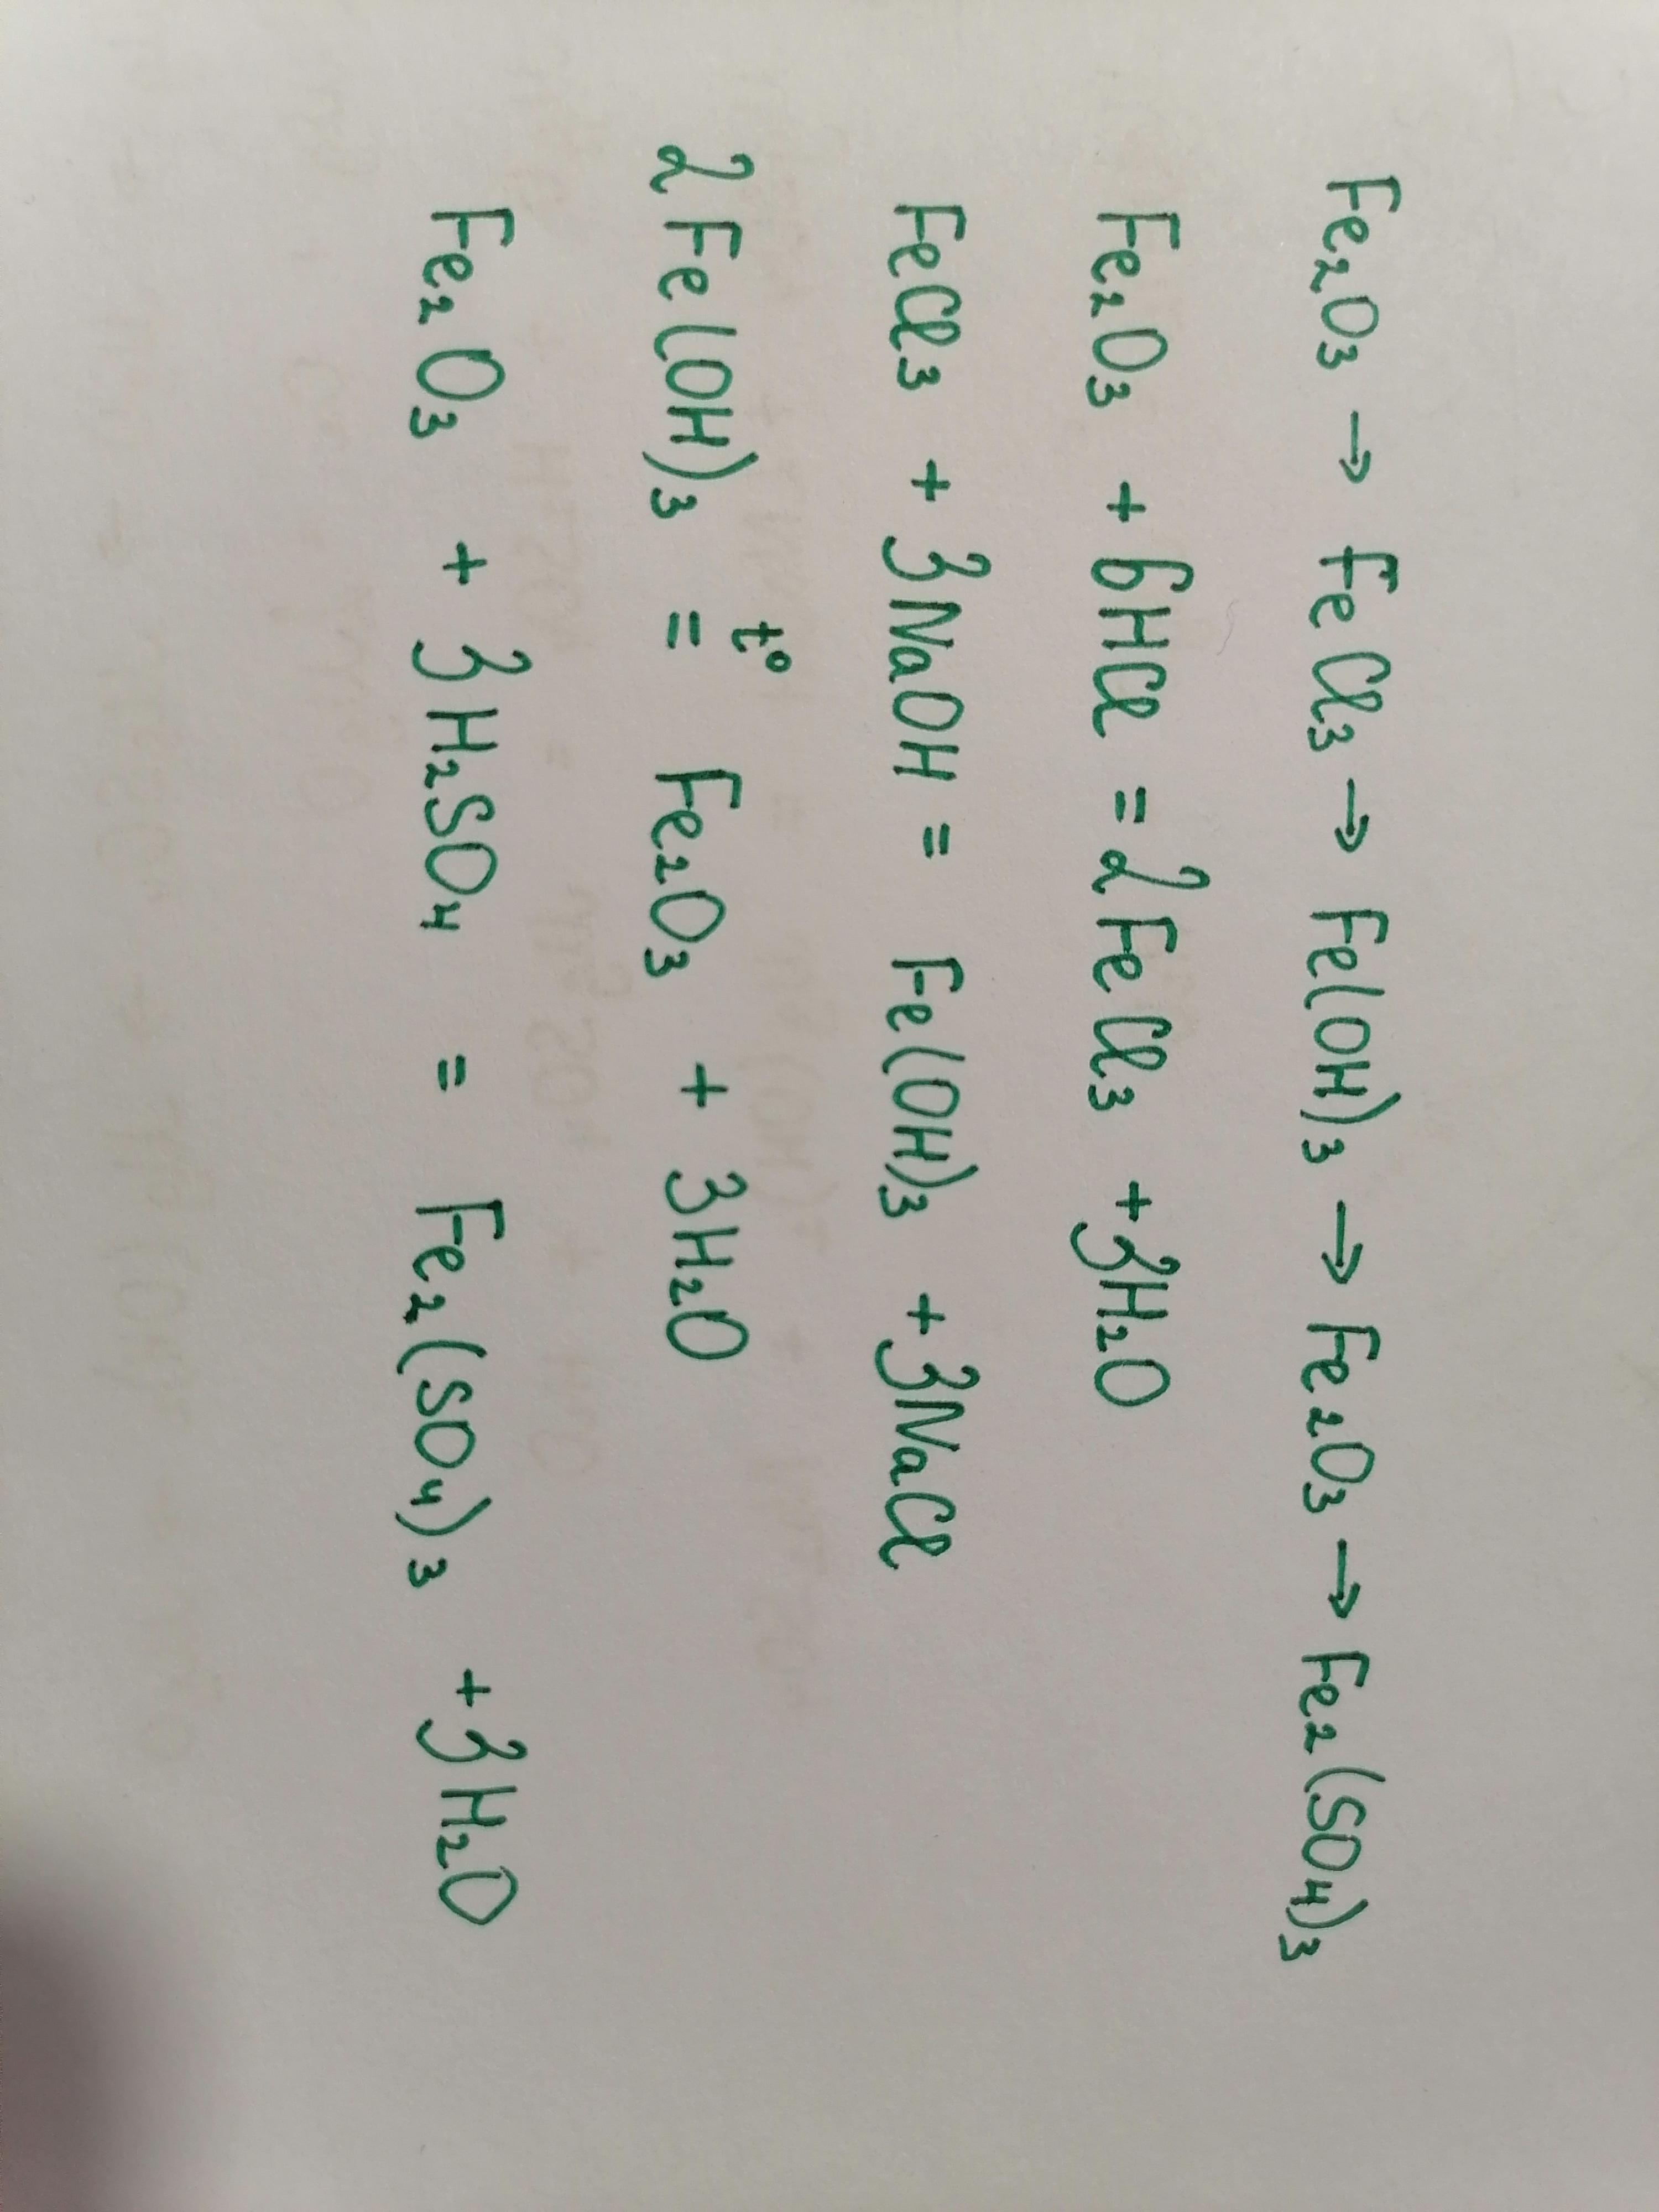 Fe₂O₃ → FeCl₃ → Fe(OH)₃ → Fe₂O₃ → Fe₂(SO₄)₃
Fe₂O₃ + 6HCl = 2FeCl₃ + 3H₂O
FeCl₃ + 3NaOH = Fe(OH)₃ + 3NaCl
2Fe(OH)₃ =t° Fe₂O₃ + 3H₂O
Fe₂O₃ + 3H₂SO₄ = Fe₂(SO₄)₃ + 3H₂O